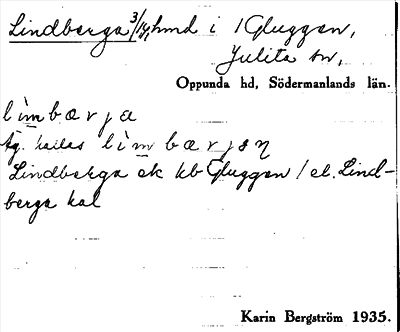 Lindberga 3/14 hmd i / Gluggen,
Julita sn,
Oppunda hd, Södermanlands län.
lìmbærja
äg. kallas lìmbærjen
Lindberga ek kb Gluggen / el. Lind-
berga kal
Karin Bergström 1935.